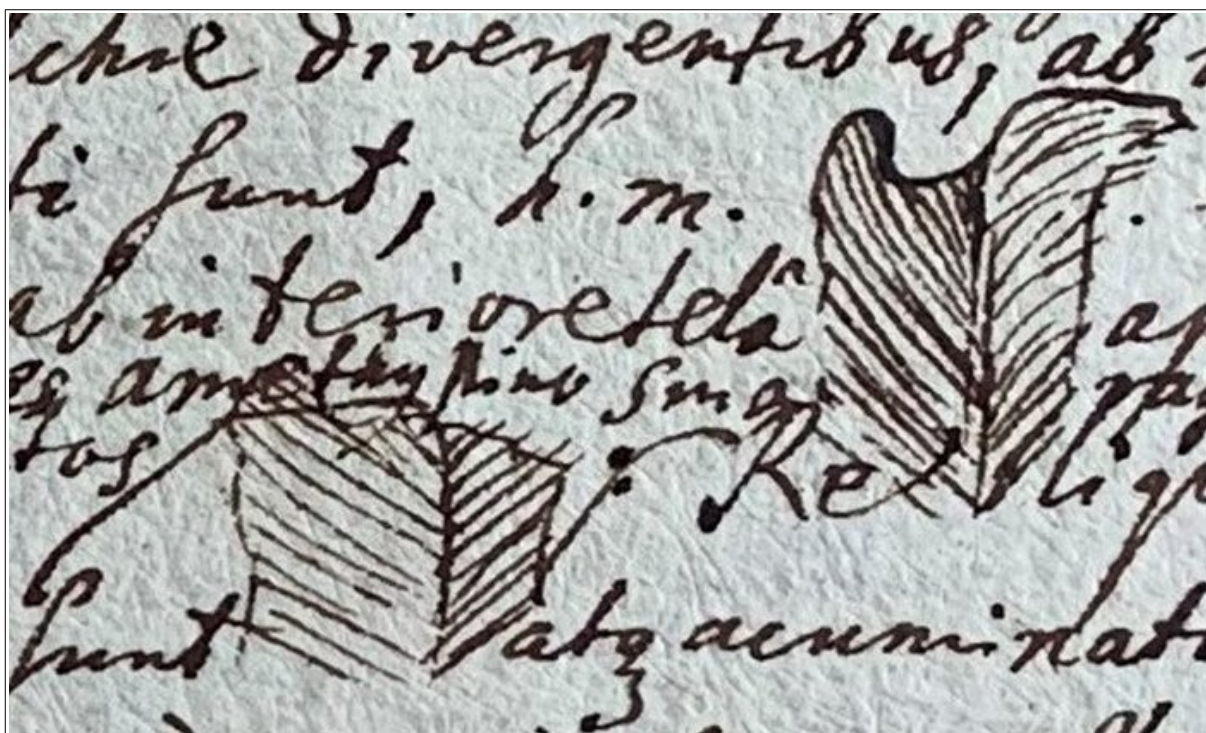 chre divergentibus, ab
ti sunt, h. m.
ab interiore tela
es amethystino smarag
tos Reliq
sunt atq acuminat